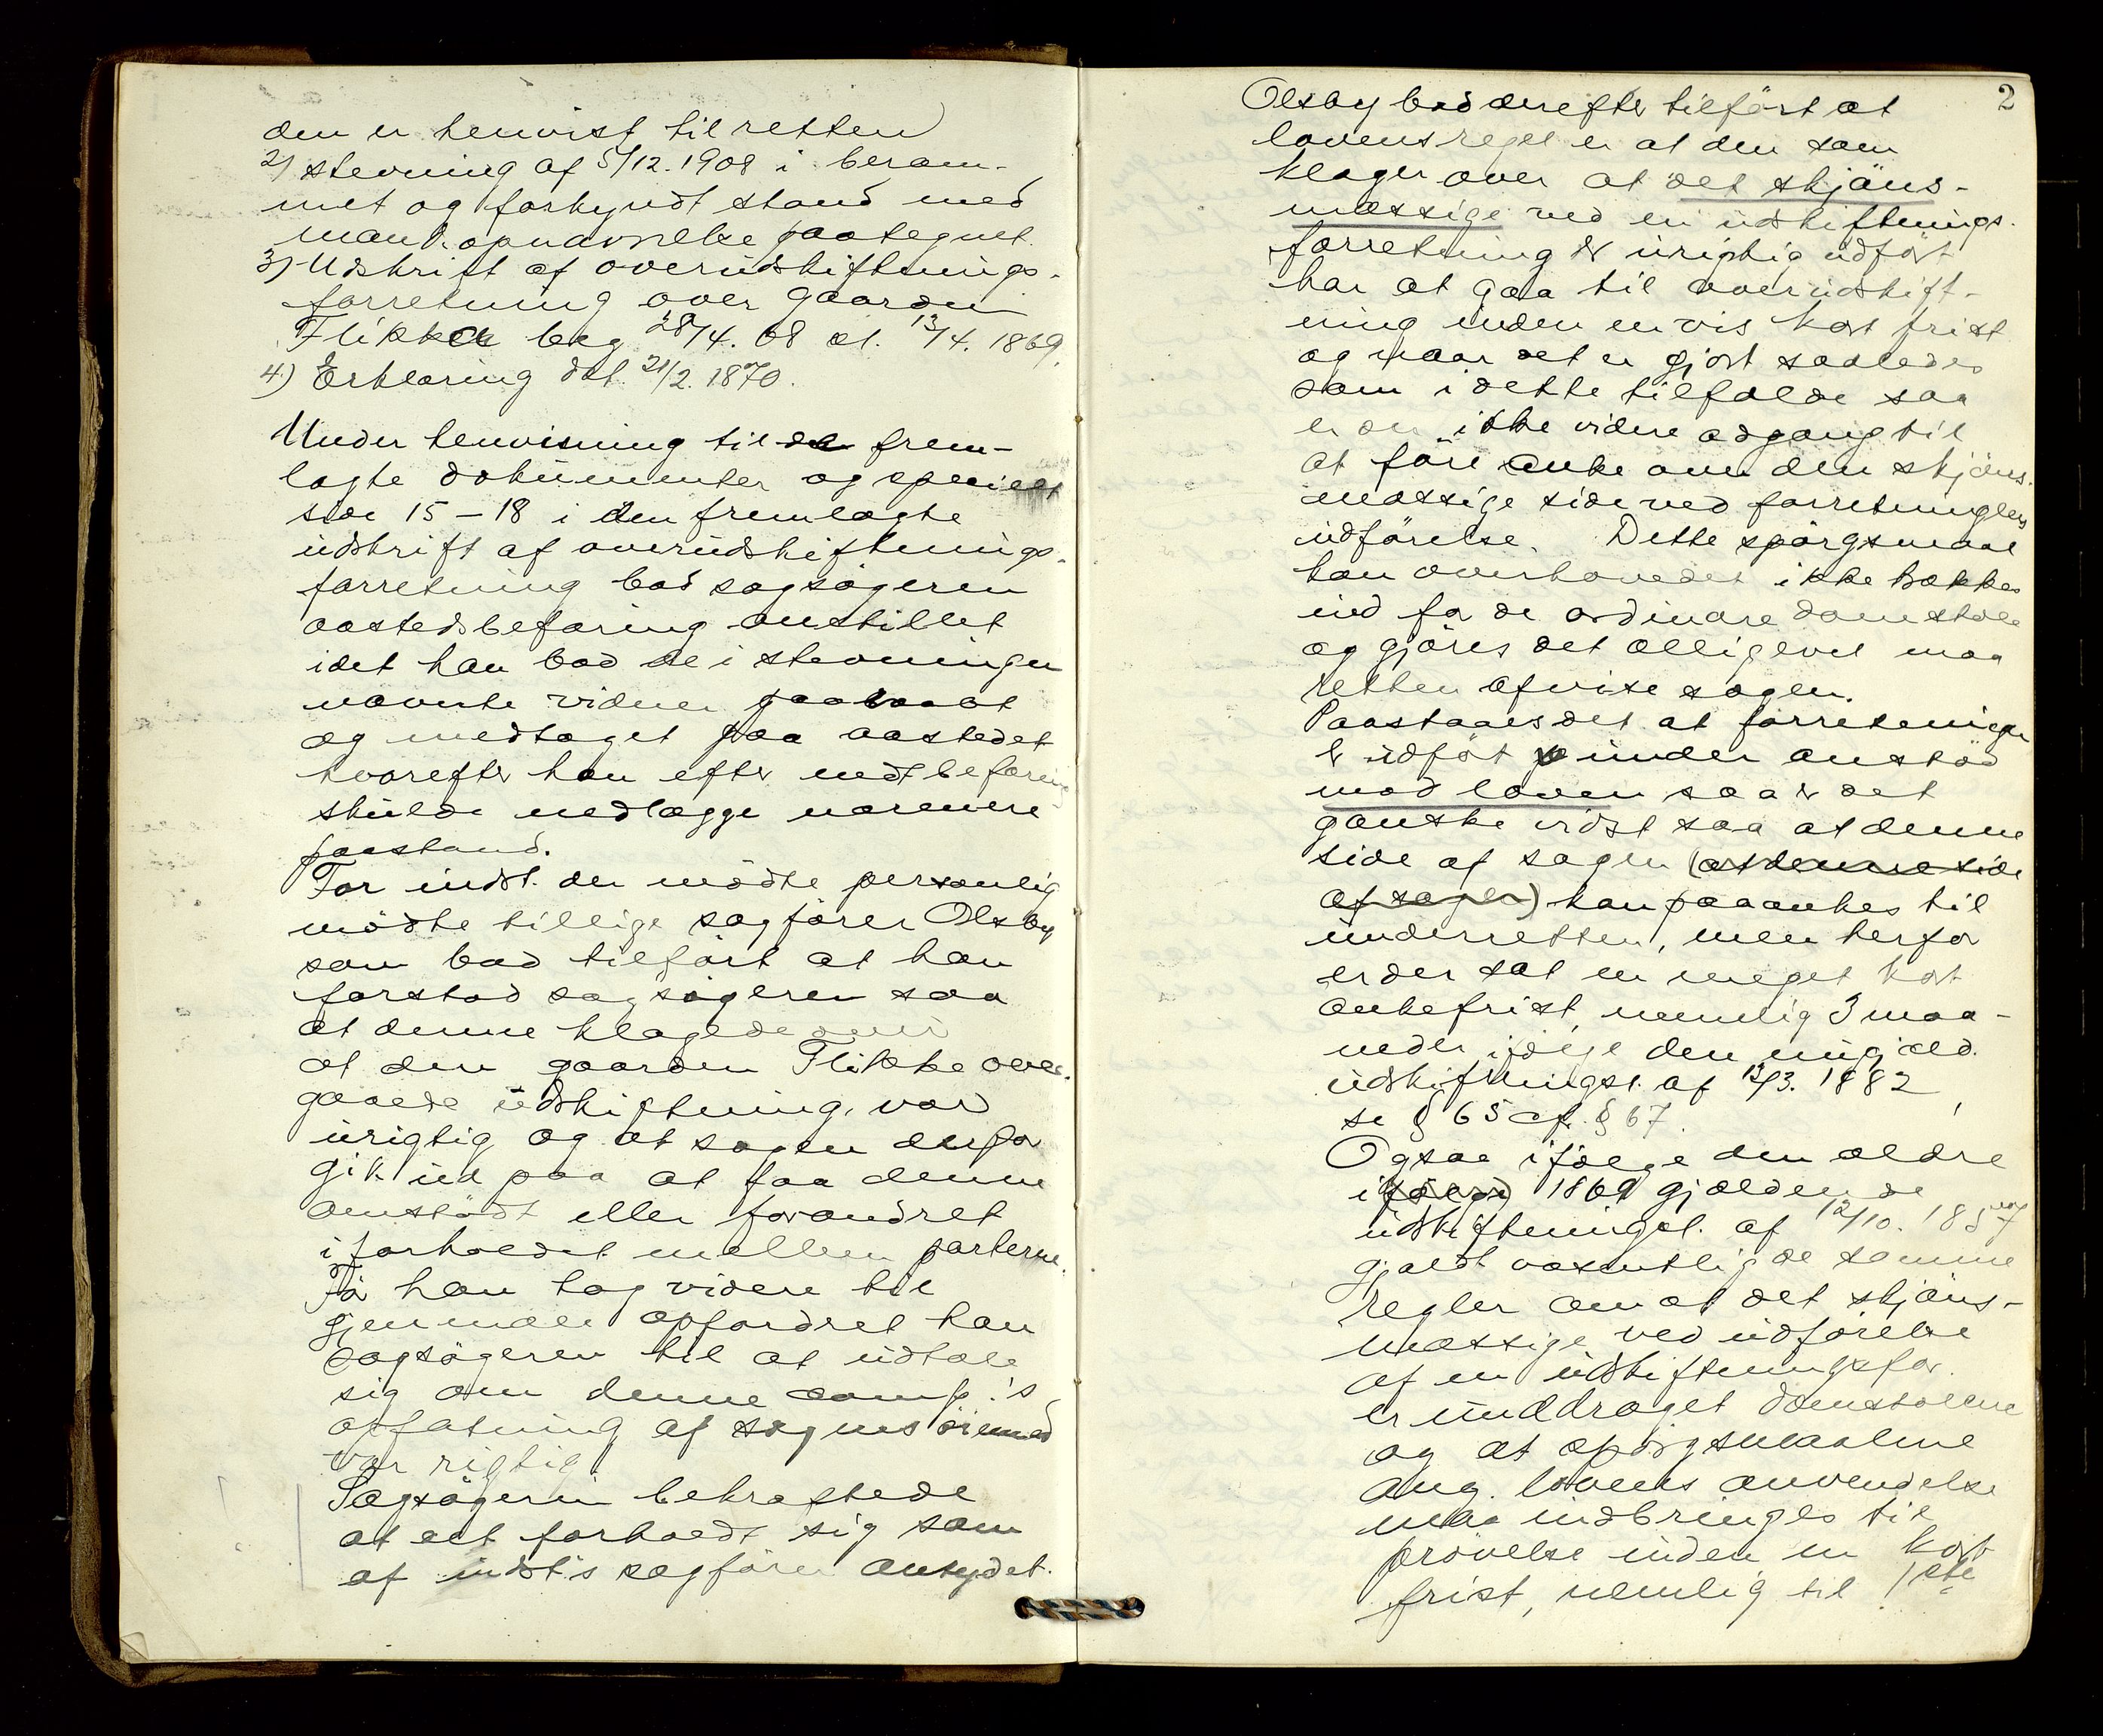 den er henvist til retten
2) stevning af 5/12. 1908 i beram-
met og forkyndt stand med
mank. opnævnelse paategnet.
3) Udskrift af overudskiftnings-
forretning over gaarden
Flikke beg 28/4. 68 sl. 13/4. 1869.
4) Erklæring dat. 21/2. 1870.
Under henvisning til de frem-
lagte dokumenter og specielt
side 15 – 18 i den fremlagte
udskrift af overudskiftnings-
forretning bad sagsøgeren
aastedsbefaring anstillet
idet han bad de i stevningen
nævnte vidner paaraabt
og medtaget paa aastedet
hvorefter han efter endt befaring
skulde nedlægge nærmere
paastand.
For indst. der mødte personlig
mødte tillige sagfører Olsby
som bad tilført at han
forstod sagsøgeren saa
at denne klagede over
at den gaarden Flikke over-
gaaede udskiftning var
urigtig og at sagen derfor
gik ud paa at faa denne
omstødt eller forandret
i forholdet mellem parterne.
Før han tog videre til
gjenmæle opfordret han
sagsøgeren til at udtale
sig om denne comp.'s
opfatning af sagens øiemed
var rigtig.
Sagsøgeren bekræftede
at alt forholdt sig som
af indst's sagfører antydet.
2
Olsby bad derefter tilført at
lovens regel er at den som
klager over at det skjøns-
mæssige ved en udskiftnings-
forretning er urigtig udført
har at gaa til overudskift-
ning inden en vis kort frist
og naar det er gjort saaledes
som i dette tilfælde saa
er der ikke videre adgang til
at føre anke over den skjøns-
mæssige side ved forretningens
udførelse. Dette spørgsmaal
kan overhovedet ikke trækkes
ind for de ordinære domstole
og gjøres det alligevel maa
retten afvise sagen.
Paastaaes det at forretningen
er udført under anstød
mod loven saa er det
ganske vidst saa at denne
side af sagen (at denne side
af sagen) kan paaankes til
underretten, men herfor
er der sat en meget kort
ankefrist, nemlig 3 maa-
neder ifølge den nugjæld.
udskiftningsl. af 13/3. 1882,
se § 65 cfr. § 67.
Ogsaa ifølge den ældre
i (følge) 1869 gjældende
udskiftningsl. af 12/10. 1857
gjaldt væsentlig de samme
regler om at det skjøns-
mæssige ved udførelse
af en udskiftningsfor.
er unddraget domstolene
og at spørgsmaalene
ang. lovens anvendelse
maa indbringes til
prøvelse inden en kort
frist, nemlig til 1ste